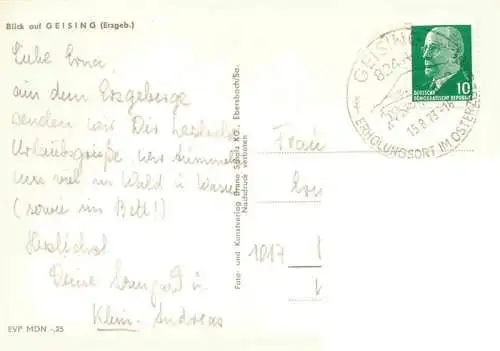 Blick auf GEISING (Erzgeb.)
Liebe Erna!
aus dem Erzgebirge
senden wir Dir herzliche
Urlaubsgrüße. Wir tummeln
uns viel im Wald u. Wasser
(sowie im Bett!)
Herzlichst
Deine Irmgard u.
Klein-Andreas
EVP MDN -.25
Foto- und Kunstverlag Bruno Scholz KG., Ebersbach/Sa.
Nachdruck verboten
GEISING
824
15.8.73-16
ERHOLUNGSORT IM OSTERZGEB
DEUTSCHE
DEMOKRATISCHE REPUBLIK
10
Frau
1017